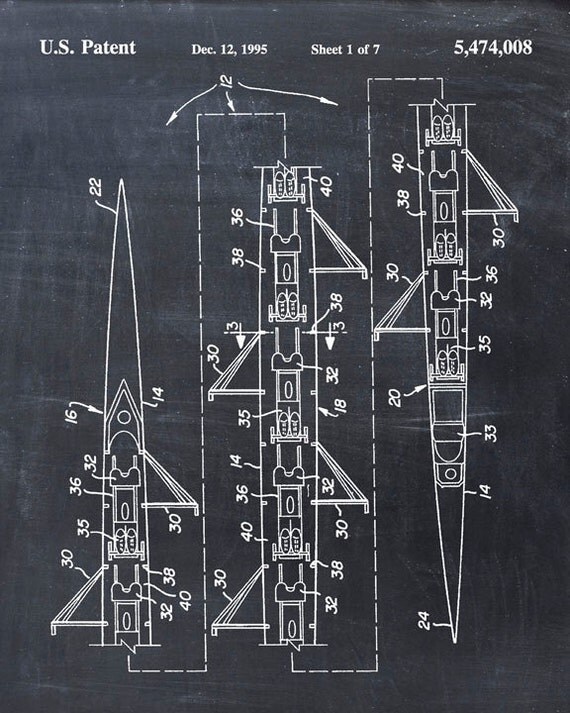 U.S. Patent
Dec. 12, 1995
Sheet 1 of 7
5,474,008
12
22
16
14
32
36
35
30
30
38
40
32
40
36
38
38
3
3
30
30
32
35
18
14
36
32
30
40
30
38
32
40
38
30
30
36
32
35
20
33
14
24